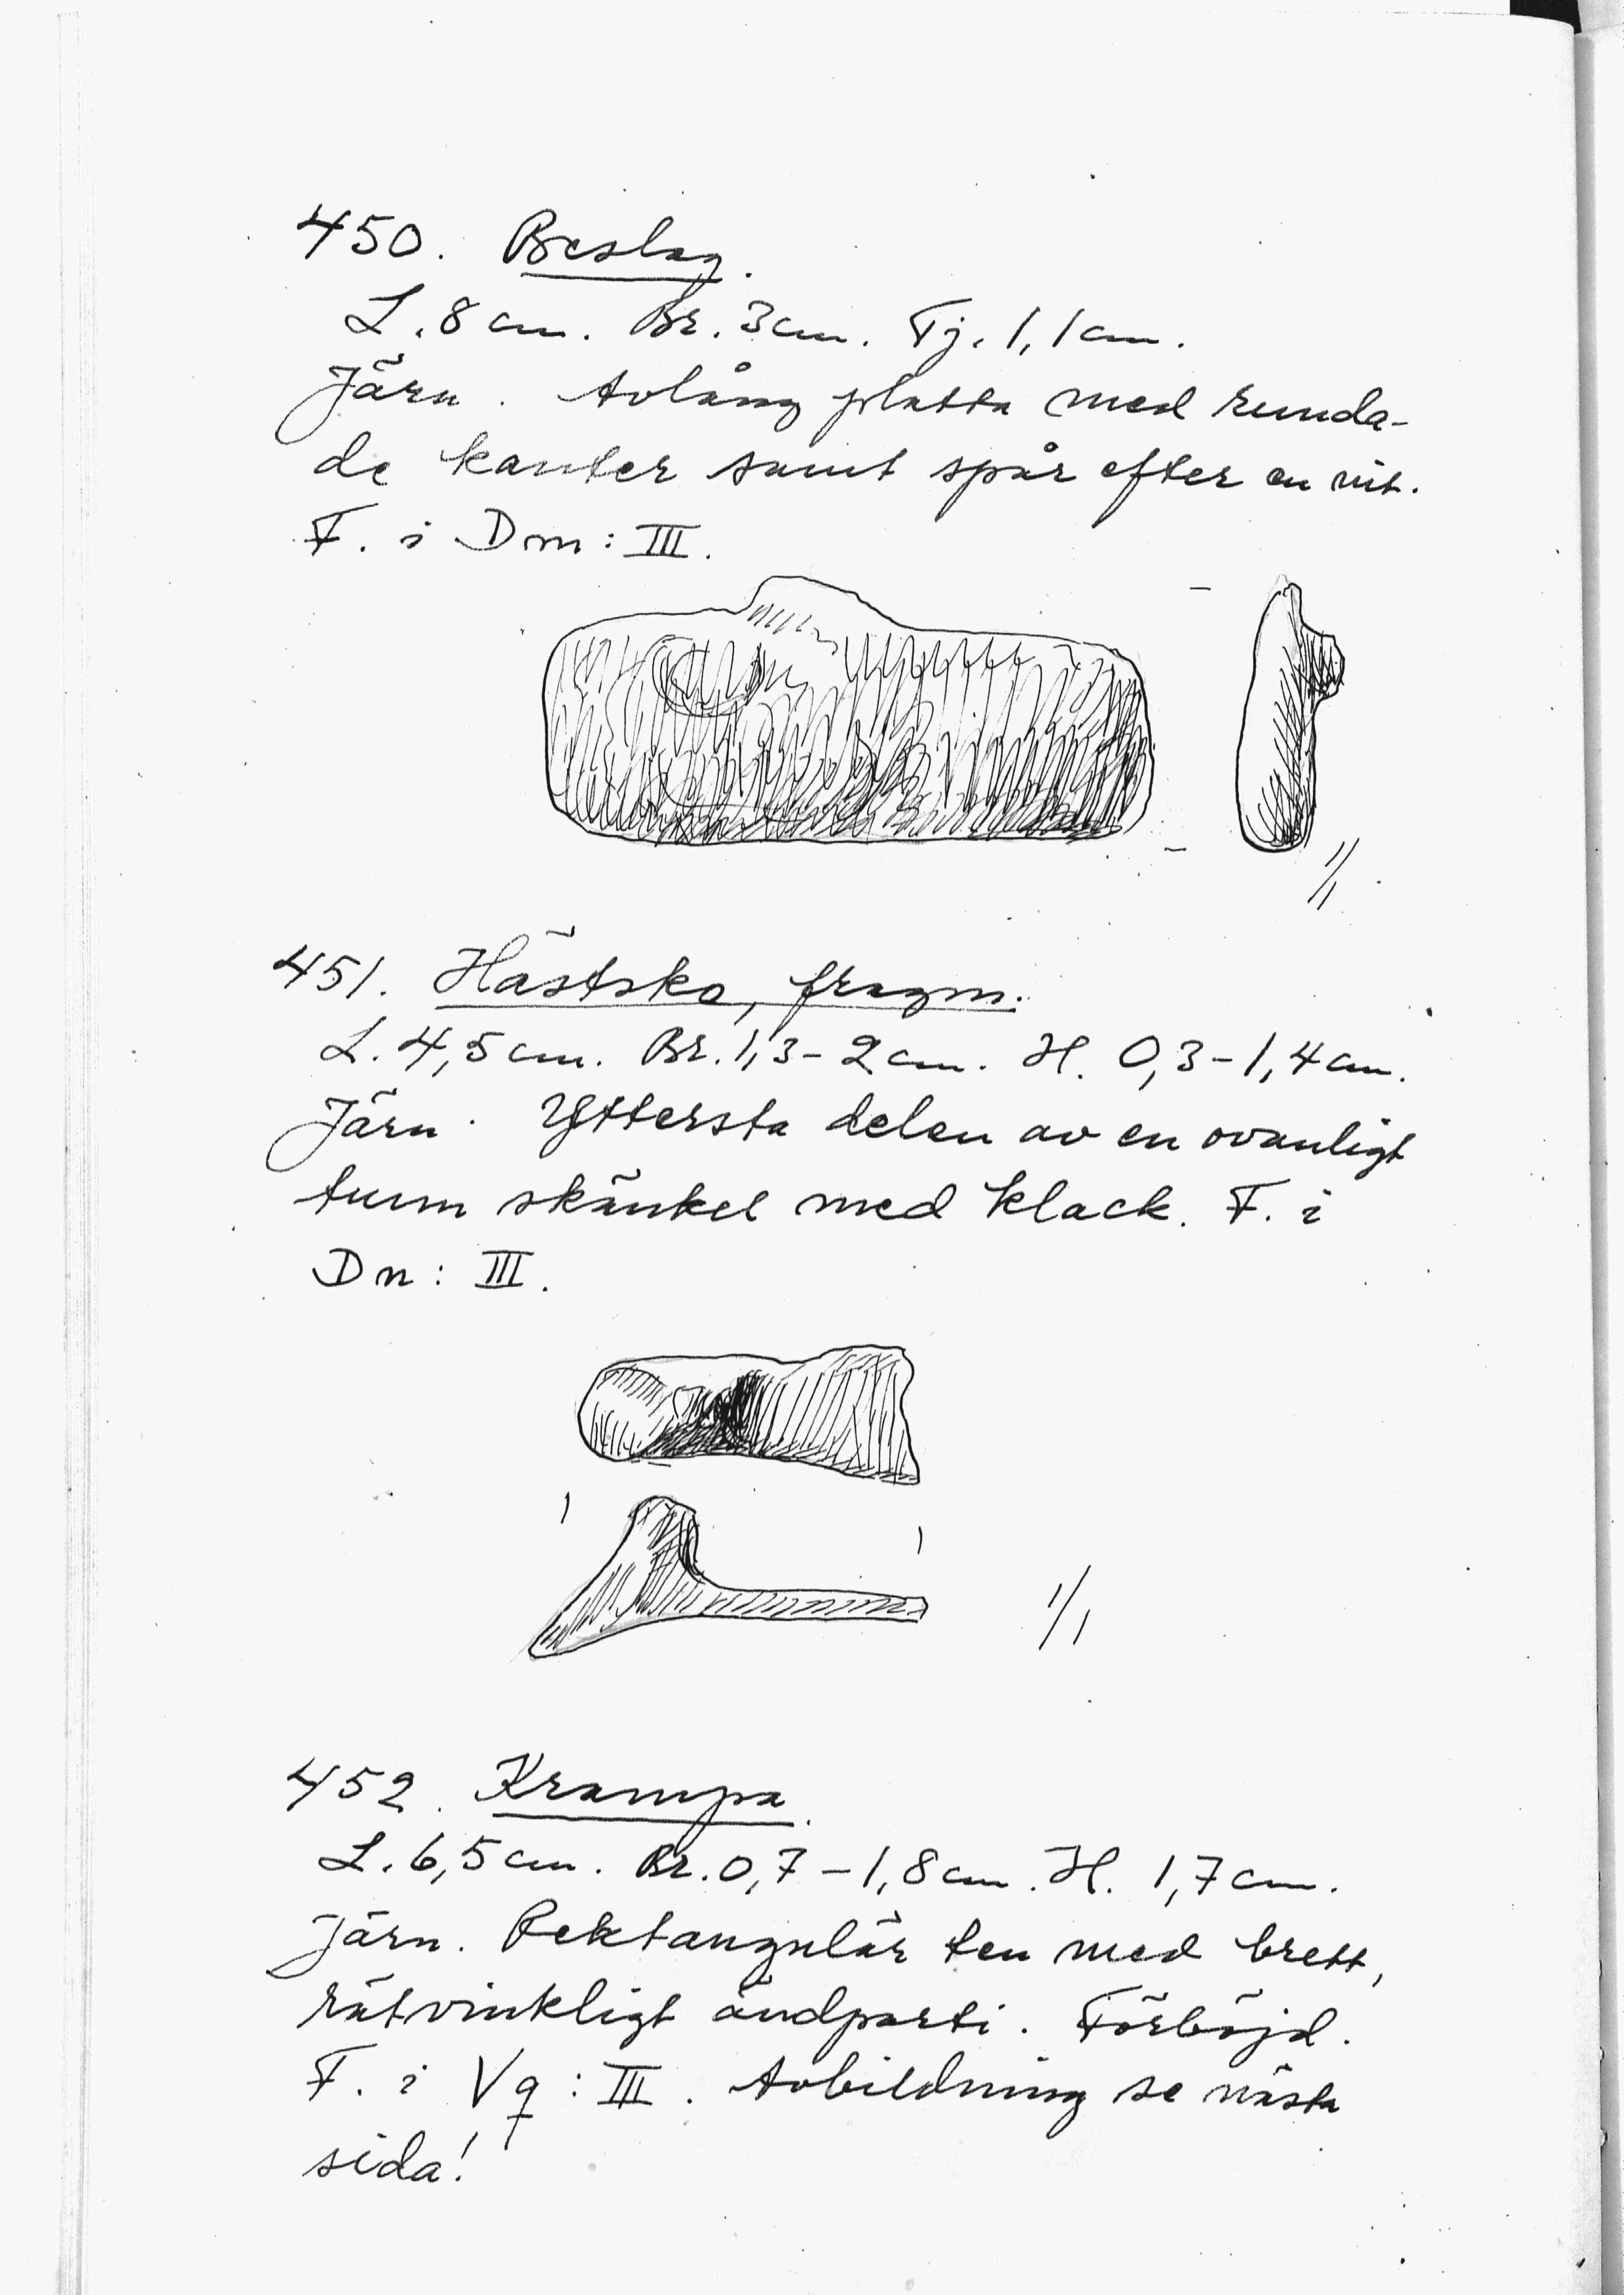 450. Beslag.
L. 8 cm. Br. 3 cm. Tj. 1,1 cm.
Järn. Avlång platta med runda-
de kanter samt spår efter en nit.
F. i Dm: III.
1/1
451. Hästsko, fragm.
L. 4,5 cm. Br. 1,3-2 cm. H. 0,3-1,4 cm.
Järn. Yttersta delen av en ovanligt
tunn skänkel med klack. F. i
Dn: III.
1/1
452. Krampa.
L. 6,5 cm. Br. 0,7-1,8 cm. H. 1,7 cm.
Järn. Rektangulär ten med brett,
rätvinkligt ändparti. Förböjd.
F. i Vq: III. Avbildning se nästa
sida!